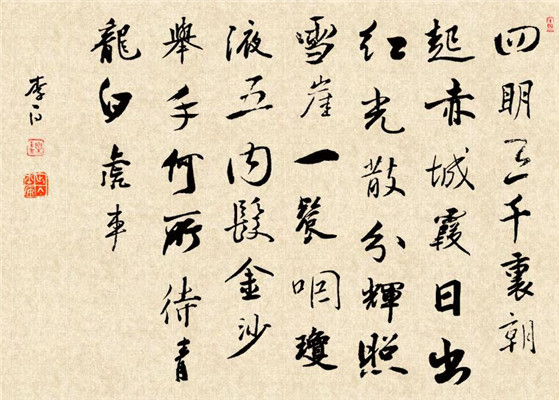 四明三千裏朝
起赤城霞日出
红光散分輝照
雪崖一餐咽瓊
液五内髮金沙
舉手何所待青
龍白虎車
李白